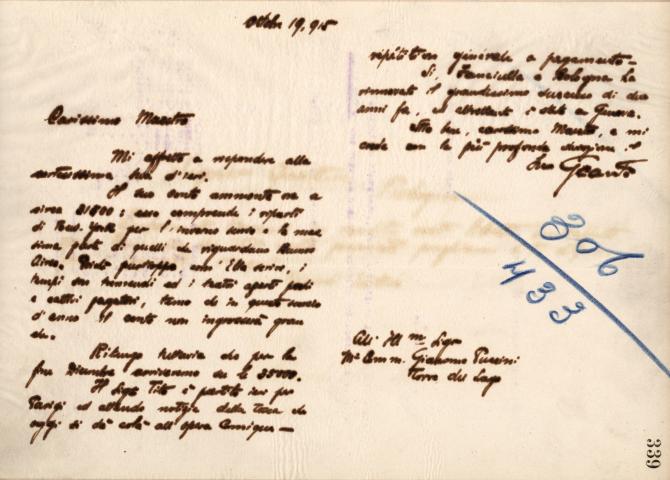 Ottobre 19, 915
Carissimo Maestro
Mi affretto a rispondere alla
carissima Sua d'ieri.
Il Suo conto ammonta ora a
circa 31800: esso comprende i riparti
di New-York per l'inverno scorso e la mas
sima parte di quelli che riguardano Buenos
Aires. Poichè purtroppo, com'Ella scrive, i
tempi son tremendi ed i teatri aperti pochi
e cattivi pagatori, temo che in questo scorcio
d'anno il conto non ingrosserà gran
che.
Ritengo tuttavia che per la
fine Dicembre arriveremo a £ 35000.
Il Sigr Tito è partito ieri per
Parigi ed attendo notizie della Tosca che
oggi si dà colà all'Opéra Comique—
ripetitore generale a pagamento—
Sì, Fanciulla a Bologna ha
rinnovato il grandissimo successo di due
anni fa, ed altrettanto è stato a Genova.
Stia bene, carissimo Maestro, e mi
creda con la più profonda devozione il
Suo
All' Ill.mo Sigr
Mo Comm. Giacomo Puccini
Torre del Lago
306
433
339